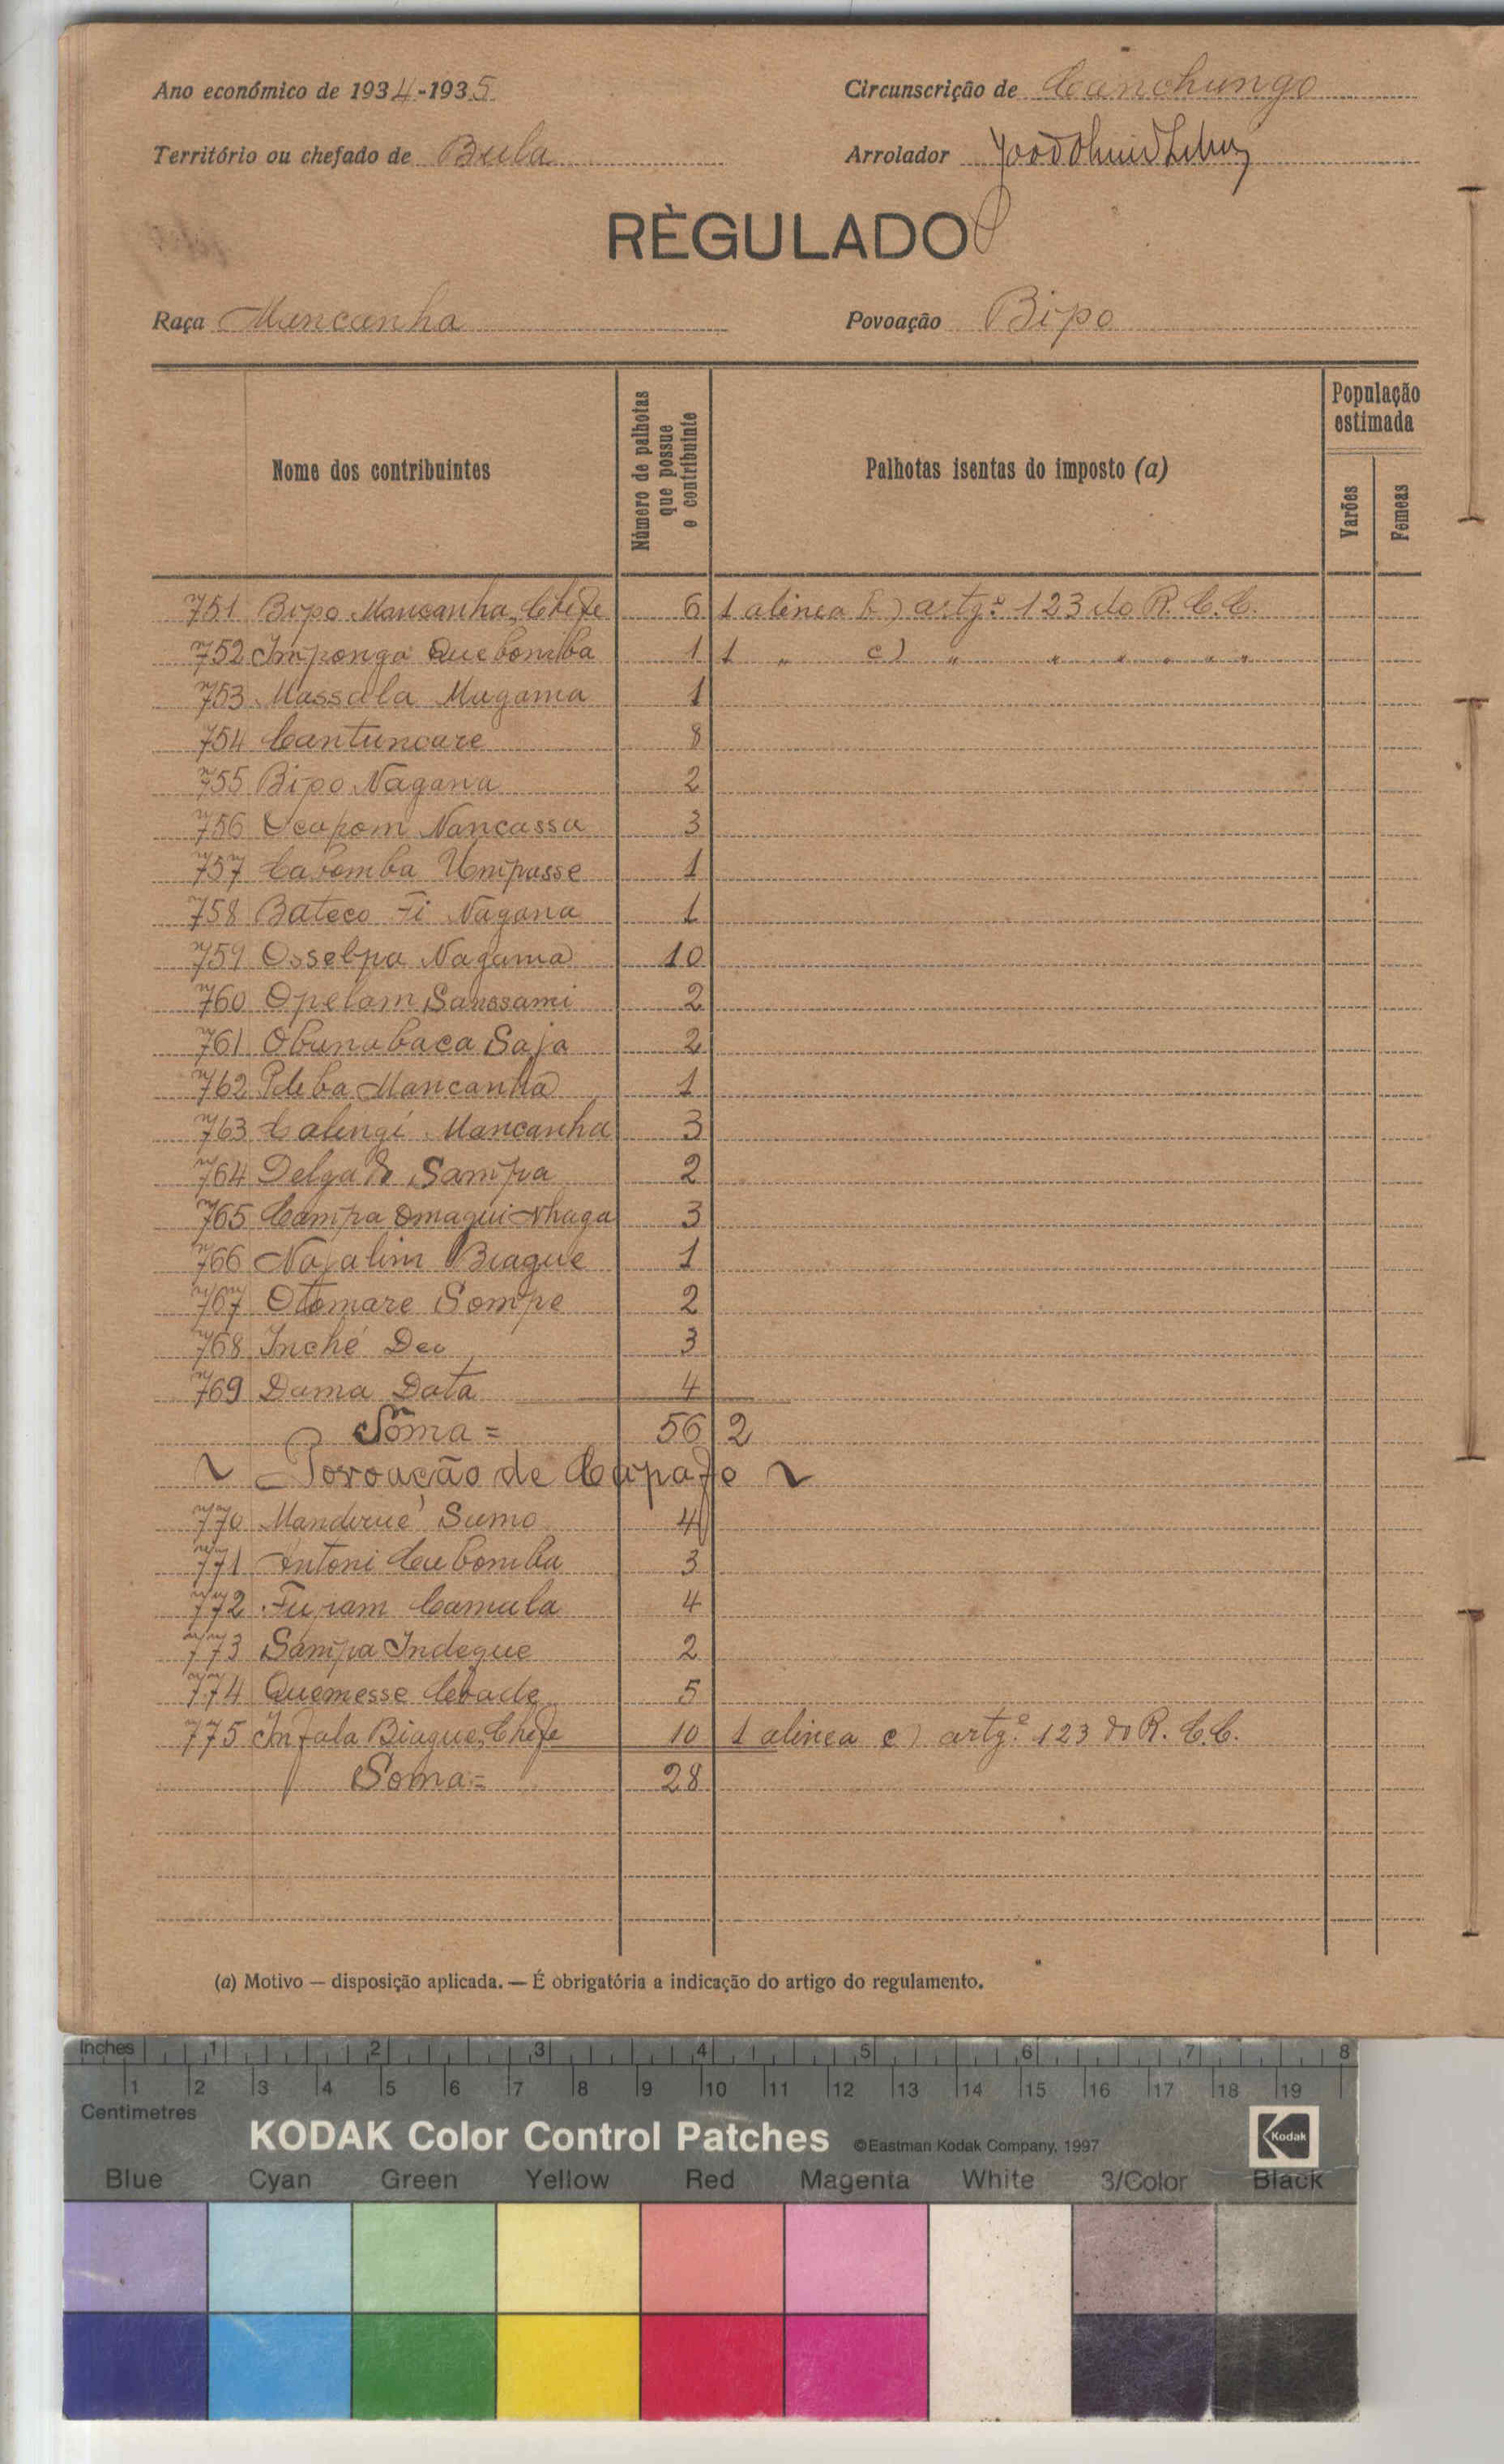 Ano económico de 1934-1935
Circunscrição de Canchungo
Território ou chefado de Bula
Arrolador
RÈGULADO
Raça Mancanha
Povoação Bipo
Nome dos contribuintes
Número de palhotas que possue o contribuinte
Palhotas isentas do imposto (a)
População estimada
Varões
Femeas
751 Bipo Mancanha, Chefe 6 1 alinea b) artgº 123 do R. C. C.
752 Imponga Quebomba 1 1 " c) " " " " " "
753 Massala Mugama 1
754 Cantuncare 8
755 Bipo Nagana 2
756 Ocapom Nancassa 3
757 Cabomba Umpasse 1
758 Bateco Fi Nagana 1
759 Osselpa Nagama 10
760 Opelam Sanssami 2
761 Obunabaca Saja 2
762 Mancanha 1
763 Calengi Mancanha 3
764 Delgado Sampa 2
765 Campa Omagui Nhaga 3
766 Najalim Biague 1
767 Otomare Sompe 2
768 Inché Deo 3
769 Dama Data 4
Sôma = 56 2
~ Povoação de Capafo ~
770 Manderué Sumo 4
771 Antoni Cubomba 3
772 Furam Camala 4
773 Sampa Indegue 2
774 Quemesse 5
775 Infala Biague, Chefe 10 1 alinea c) artgº 123 do R. C. C.
Soma = 28
(a) Motivo — disposição aplicada. — É obrigatória a indicação do artigo do regulamento.
Inches 1 2 3 4 5 6 7 8
1 2 3 4 5 6 7 8 9 10 11 12 13 14 15 16 17 18 19
Centimetres
KODAK Color Control Patches ©Eastman Kodak Company, 1997 Kodak
Blue Cyan Green Yellow Red Magenta White 3/Color Black